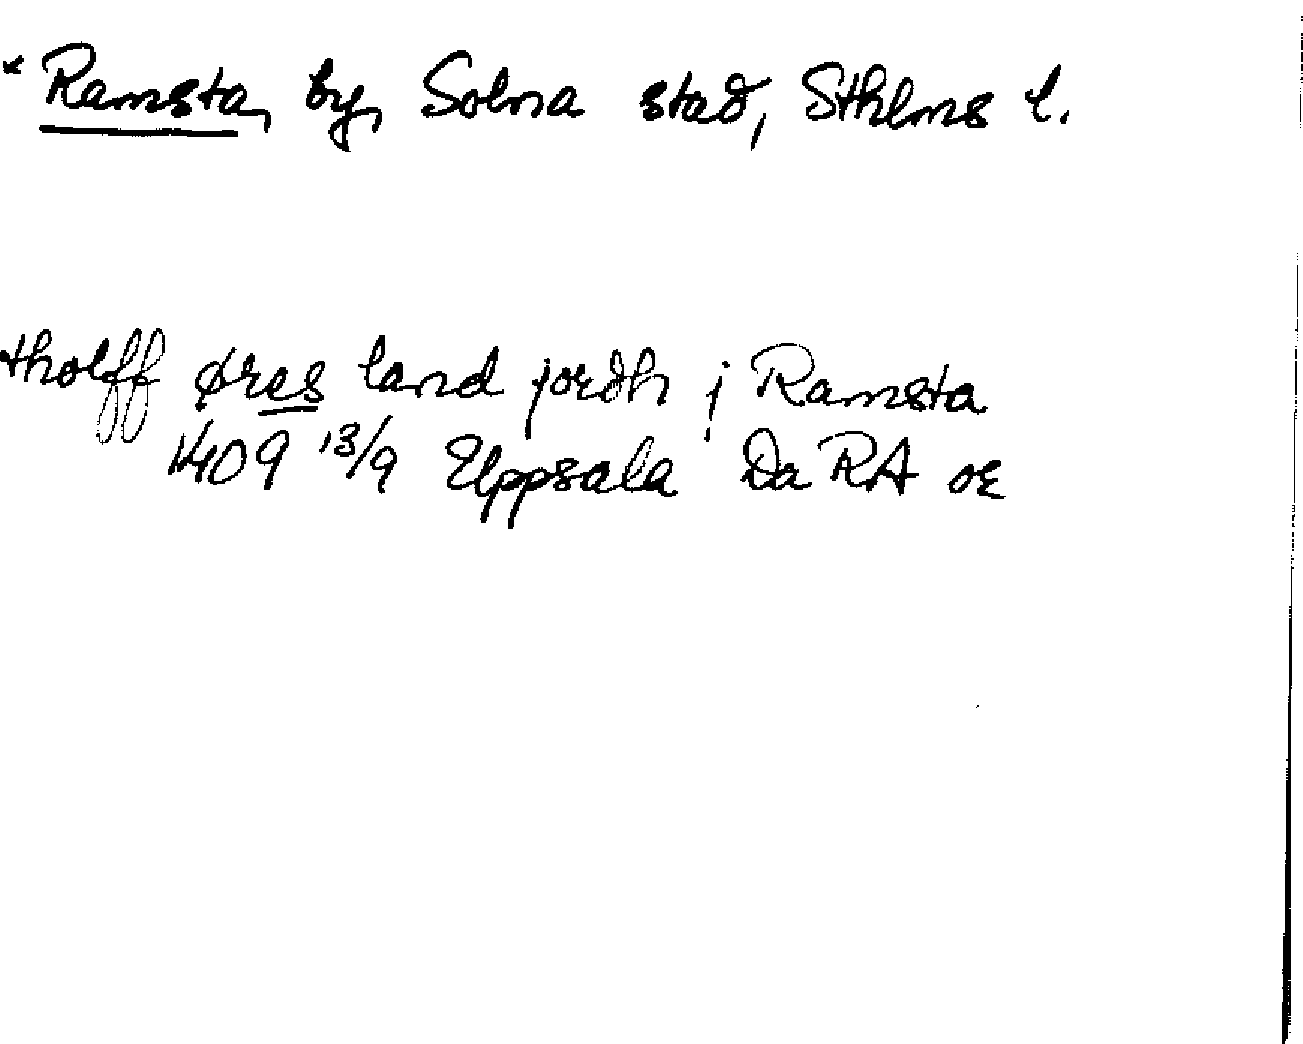 * Ramsta, by, Solna stad, Sthlms l.
tholff øres land jordh j Ramsta
1409 13/9 Uppsala Da RA or